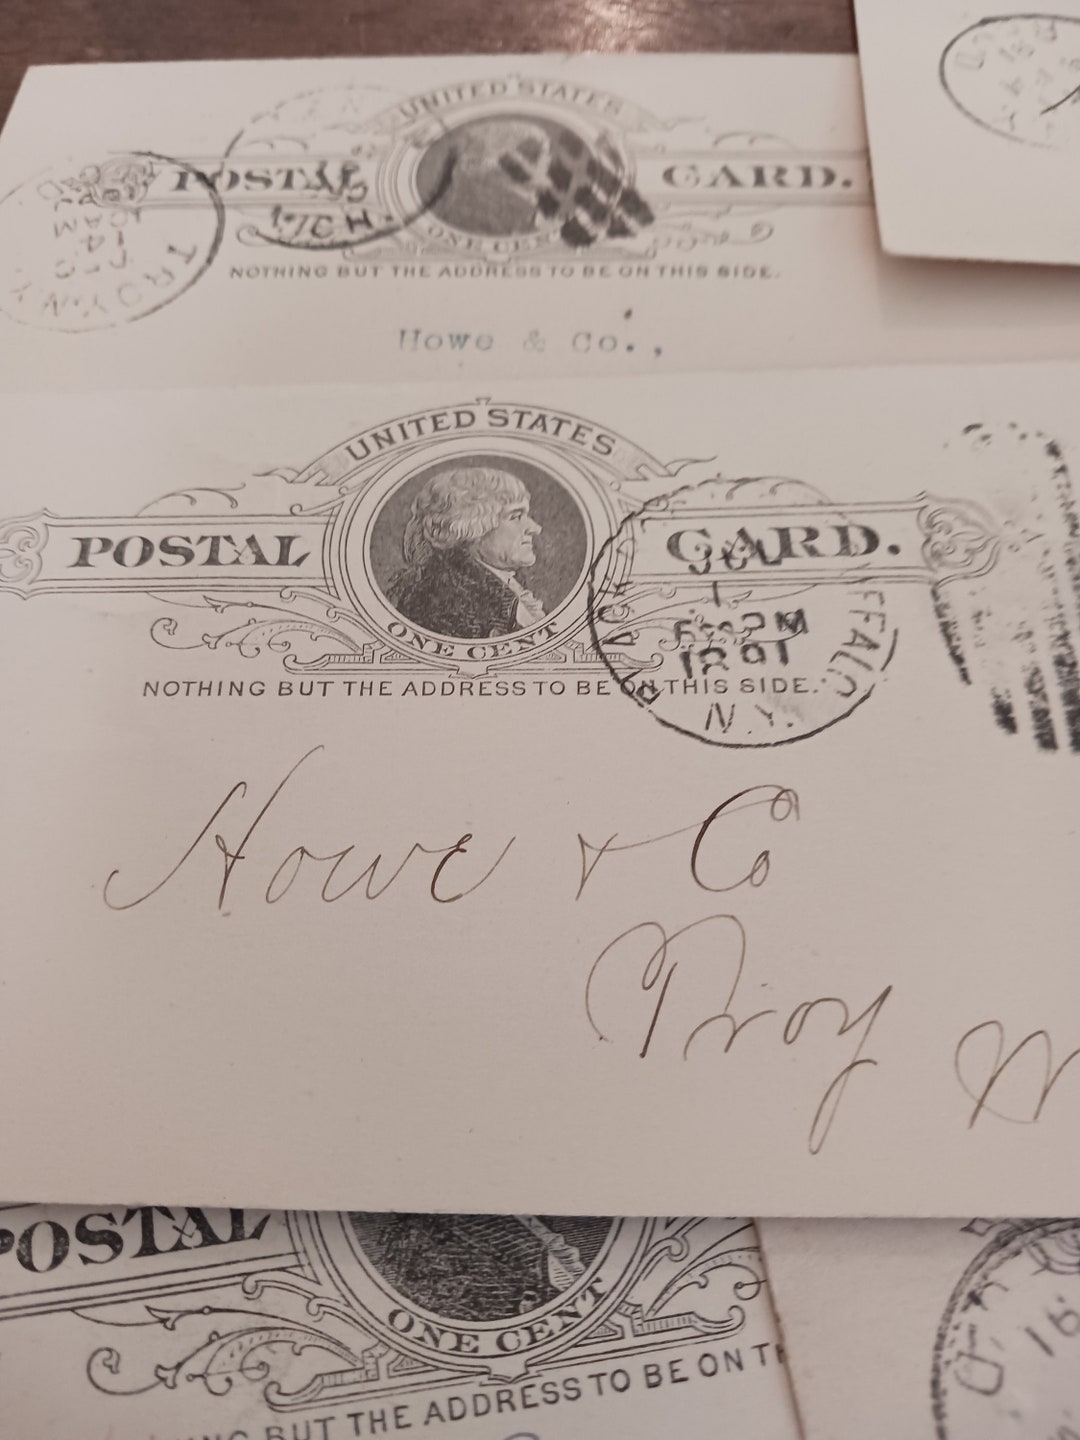 UNITED STATES
POSTAL CARD.
ONE CENT
NOTHING BUT THE ADDRESS TO BE ON THIS SIDE.
TROY N.Y.
Howe & Co.,
UNITED STATES
POSTAL CARD.
ONE CENT
NOTHING BUT THE ADDRESS TO BE ON THIS SIDE.
N.Y.
Howe & Co
Troy N
POSTAL
ONE CENT
BUT THE ADDRESS TO BE ON TH
91